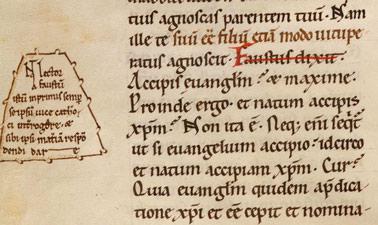 N Lector
Faustū
istū inprimis semp
se ipsū vice catho
ci introgare. &
sibi ipsi matiā respō
dendi dare
tuus agnoscas parentem tuū. Nam
ille te suū eē filiū etiā modo vitupe
ratus agnoscit. Faustus dixit.
Accipis euangliū? & maxime.
Proinde ergo. et natum accipis
xpm̄? Non ita ē. Neq; eni seqit̄
ut si euangelium accipio. idcirco
et natum accipiam xpm̄. Cur?
Quia euangliū quidem a p̄dica
tione xp̄i et eē cepit et nomina